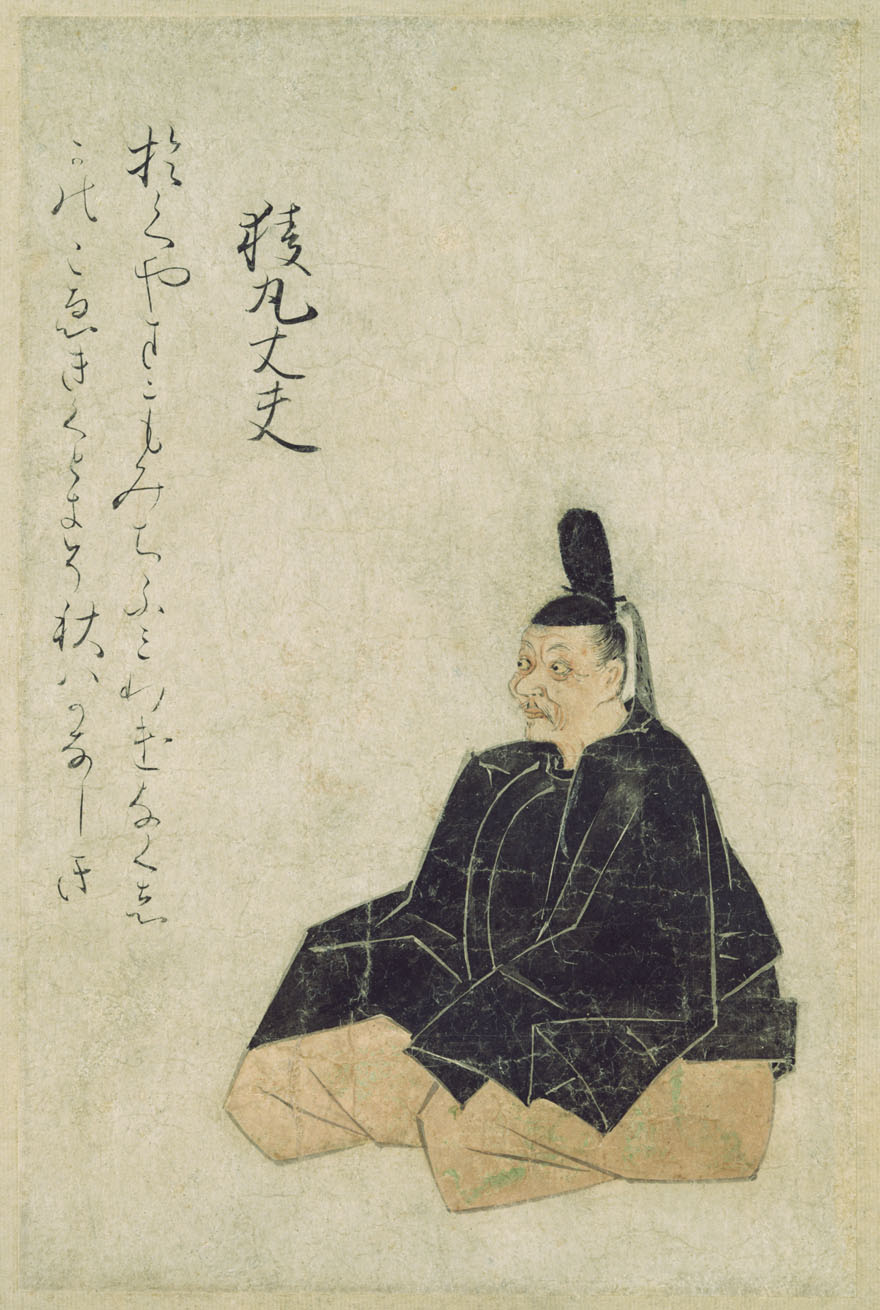 猿丸丈夫
おくやまにもみちふみわけなくし
かのこゑきくときそ秋はかなしき